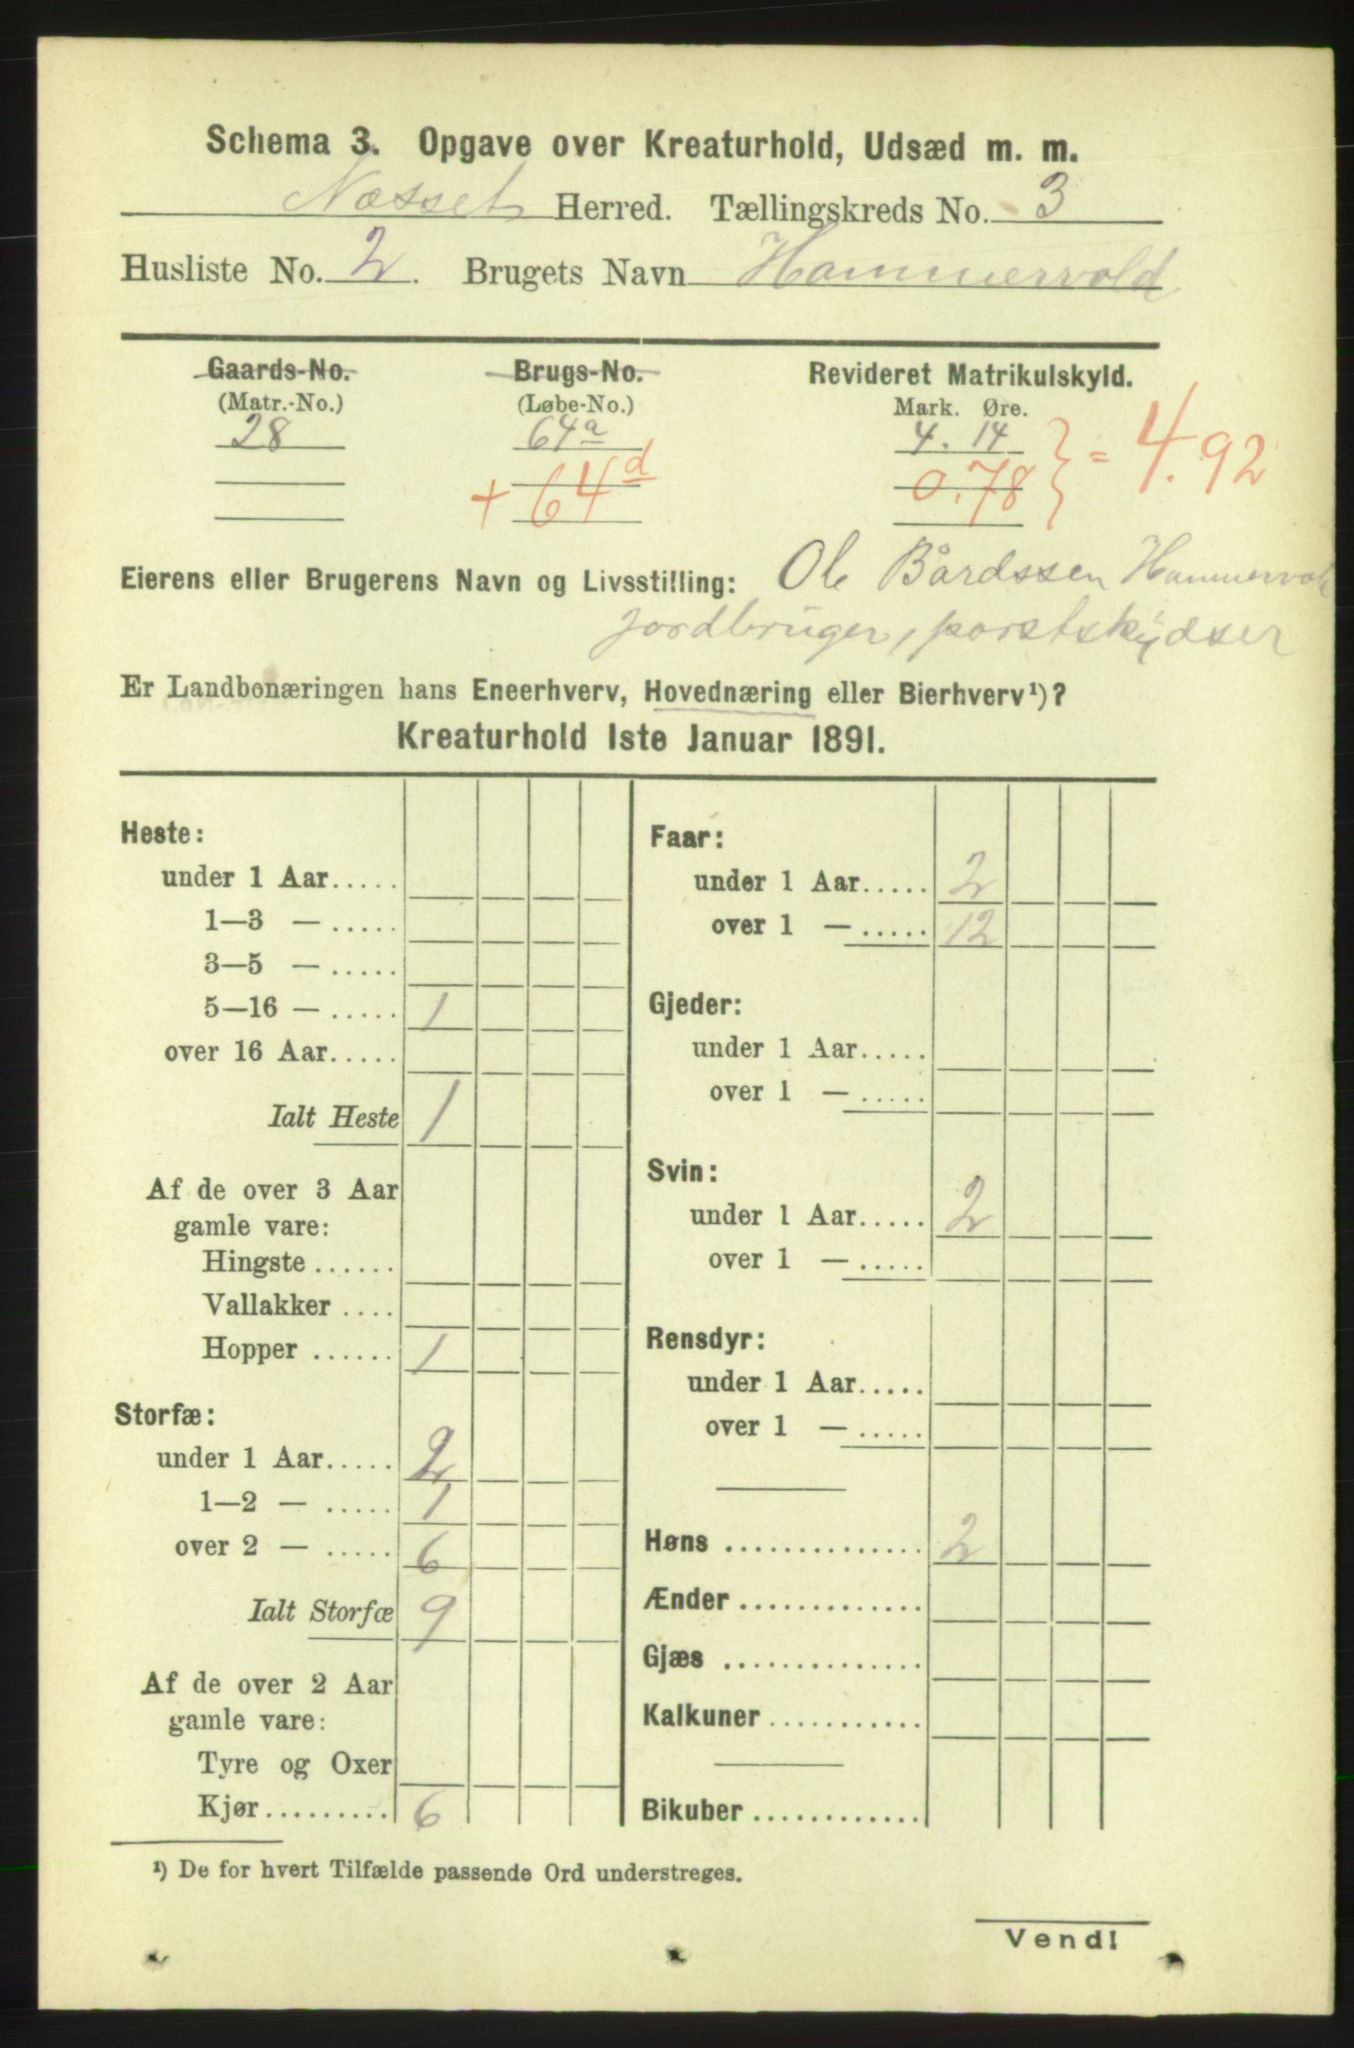 Schema 3. Opgave over Kreaturhold, Udsæd m. m.
Næsset Herred. Tællingskreds No. 3
Husliste No. 2. Brugets Navn Hammervold
Gaards-No. Brugs-No. Revideret Matrikulskyld.
(Matr.-No.) (Løbe-No.) Mark. Øre.
28 64a 4. 14
+ 64d 0.78 } = 4.92
Eierens eller Brugerens Navn og Livsstilling: Ole Bårdssen Hammervold
jordbruger,
Er Landbonæringen hans Eneerhverv, Hovednæring eller Bierhverv¹)?
Kreaturhold 1ste Januar 1891.
Heste:
under 1 Aar.....
1—3 — .....
3—5 — .....
5—16 — ..... 1
over 16 Aar.....
Ialt Heste 1
Af de over 3 Aar
gamle vare:
Hingste ......
Vallakker ....
Hopper ...... 1
Storfæ:
under 1 Aar..... 2
1—2 — ..... 1
over 2 — ..... 6
Ialt Storfæ 9
Af de over 2 Aar
gamle vare:
Tyre og Oxer
Kjør......... 6
Faar:
under 1 Aar..... 2
over 1 — ..... 12
Gjeder:
under 1 Aar.....
over 1 — .....
Svin:
under 1 Aar..... 2
over 1 — .....
Rensdyr:
under 1 Aar.....
over 1 — .....
Høns .............. 2
Ænder .............
Gjæs ..............
Kalkuner ...........
Bikuber ............
¹) De for hvert Tilfælde passende Ord understreges.
Vend!